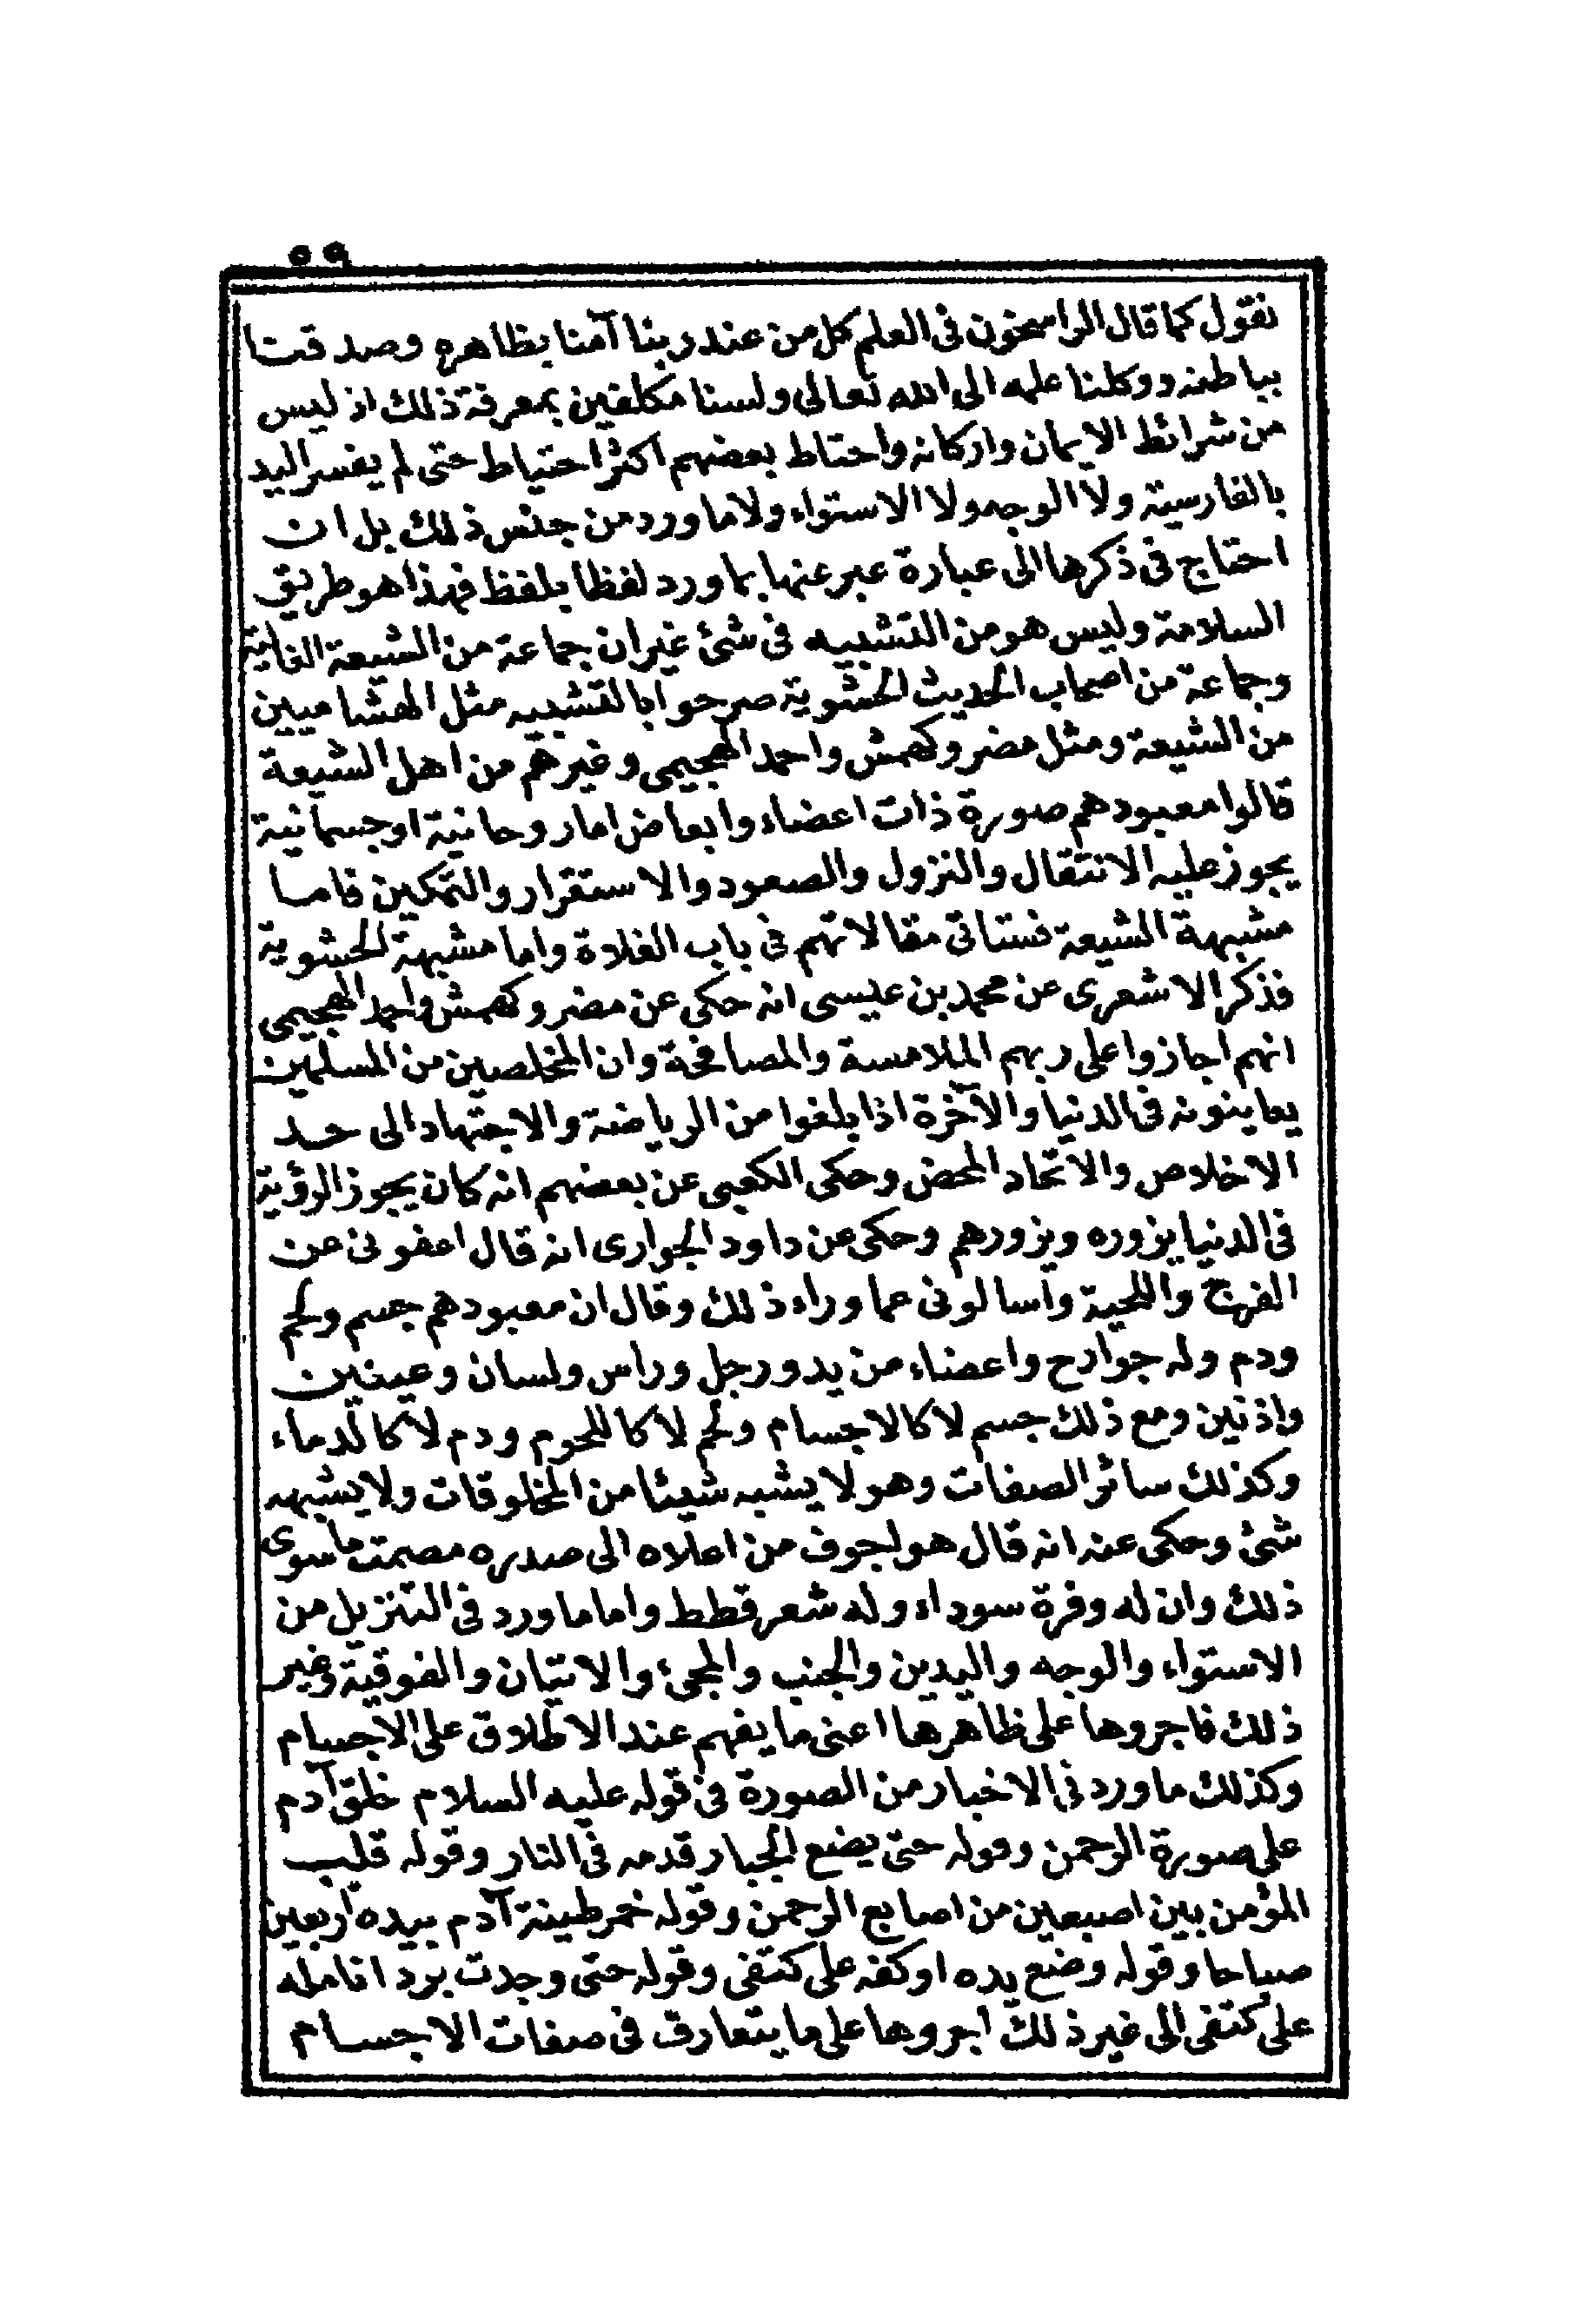 ٥٩
نقول كما قال الراسخون فى العلم كل من عند ربنا آمنا بظاهره وصدقنا
بباطنه ووكلنا علمه الى الله تعالى ولسنا مكلفين بمعرفة ذلك اذ ليس
من شرائط الايمان واركانه واحتاط بعضهم اكثر احتياط حتى لم يفسر اليد
بالفارسية ولا الوجه ولا الاستواء ولا ما ورد من جنس ذلك بل ان
احتاج فى ذكرها الى عبارة عبر عنها بما ورد لفظا بلفظ فهذا هو طريق
السلامة وليس هو من التشبيه فى شئ غير ان جماعة من الشيعة الغالية
وجماعة من اصحاب الحديث الحشوية صرحوا بالتشبيه مثل الهشاميين
من الشيعة ومثل مضر وكهمش واحمد الهجيمى وغيرهم من اهل الشيعة
قالوا معبودهم صورة ذات اعضاء وابعاض اما روحانية او جسمانية
يجوز عليه الانتقال والنزول والصعود والاستقرار والتمكين فاما
مشبهة الشيعة فستاتى مقالاتهم فى باب الغلاة واما مشبهة الحشوية
فذكر الاشعرى عن محمد بن عيسى انه حكى عن مضر وكهمش واحمد الهجيمى
انهم اجازوا على ربهم الملامسة والمصافحة وان المخلصين من المسلمين
يعاينونه فى الدنيا والآخرة اذا بلغوا من الرياضة والاجتهاد الى حد
الاخلاص والاتحاد المحض وحكى الكعبى عن بعضهم انه كان يجوز الرؤية
فى الدنيا يزوره ويزورهم وحكى عن داود الجوارى انه قال اعفونى عن
الفرج واللحية واسالونى عما وراء ذلك وقال ان معبودهم جسم ولحم
ودم وله جوارح واعضاء من يد ورجل وراس ولسان وعينين
واذنين ومع ذلك جسم لا كالاجسام ولحم لا كاللحوم ودم لا كالدماء
وكذلك سائر الصفات وهو لا يشبه شيئا من المخلوقات ولا يشبهه
شئ وحكى عنه انه قال هو اجوف من اعلاه الى صدره مصمت ما سوى
ذلك وان له وفرة سوداء وله شعر قطط واما ما ورد فى التنزيل من
الاستواء والوجه واليدين والجنب والمجئ والاتيان والفوقية وغير
ذلك فاجروها على ظاهرها اعنى ما يفهم عند الاطلاق على الاجسام
وكذلك ما ورد فى الاخبار من الصورة فى قوله عليه السلام خلق آدم
على صورة الرحمن وقوله حتى يضع الجبار قدمه فى النار وقوله قلب
المؤمن بين اصبعين من اصابع الرحمن وقوله خمر طينة آدم بيده اربعين
صباحا وقوله وضع يده او كفه على كتفى وقوله حتى وجدت برد انامله
على كتفى الى غير ذلك اجروها على ما يتعارف فى صفات الاجسام